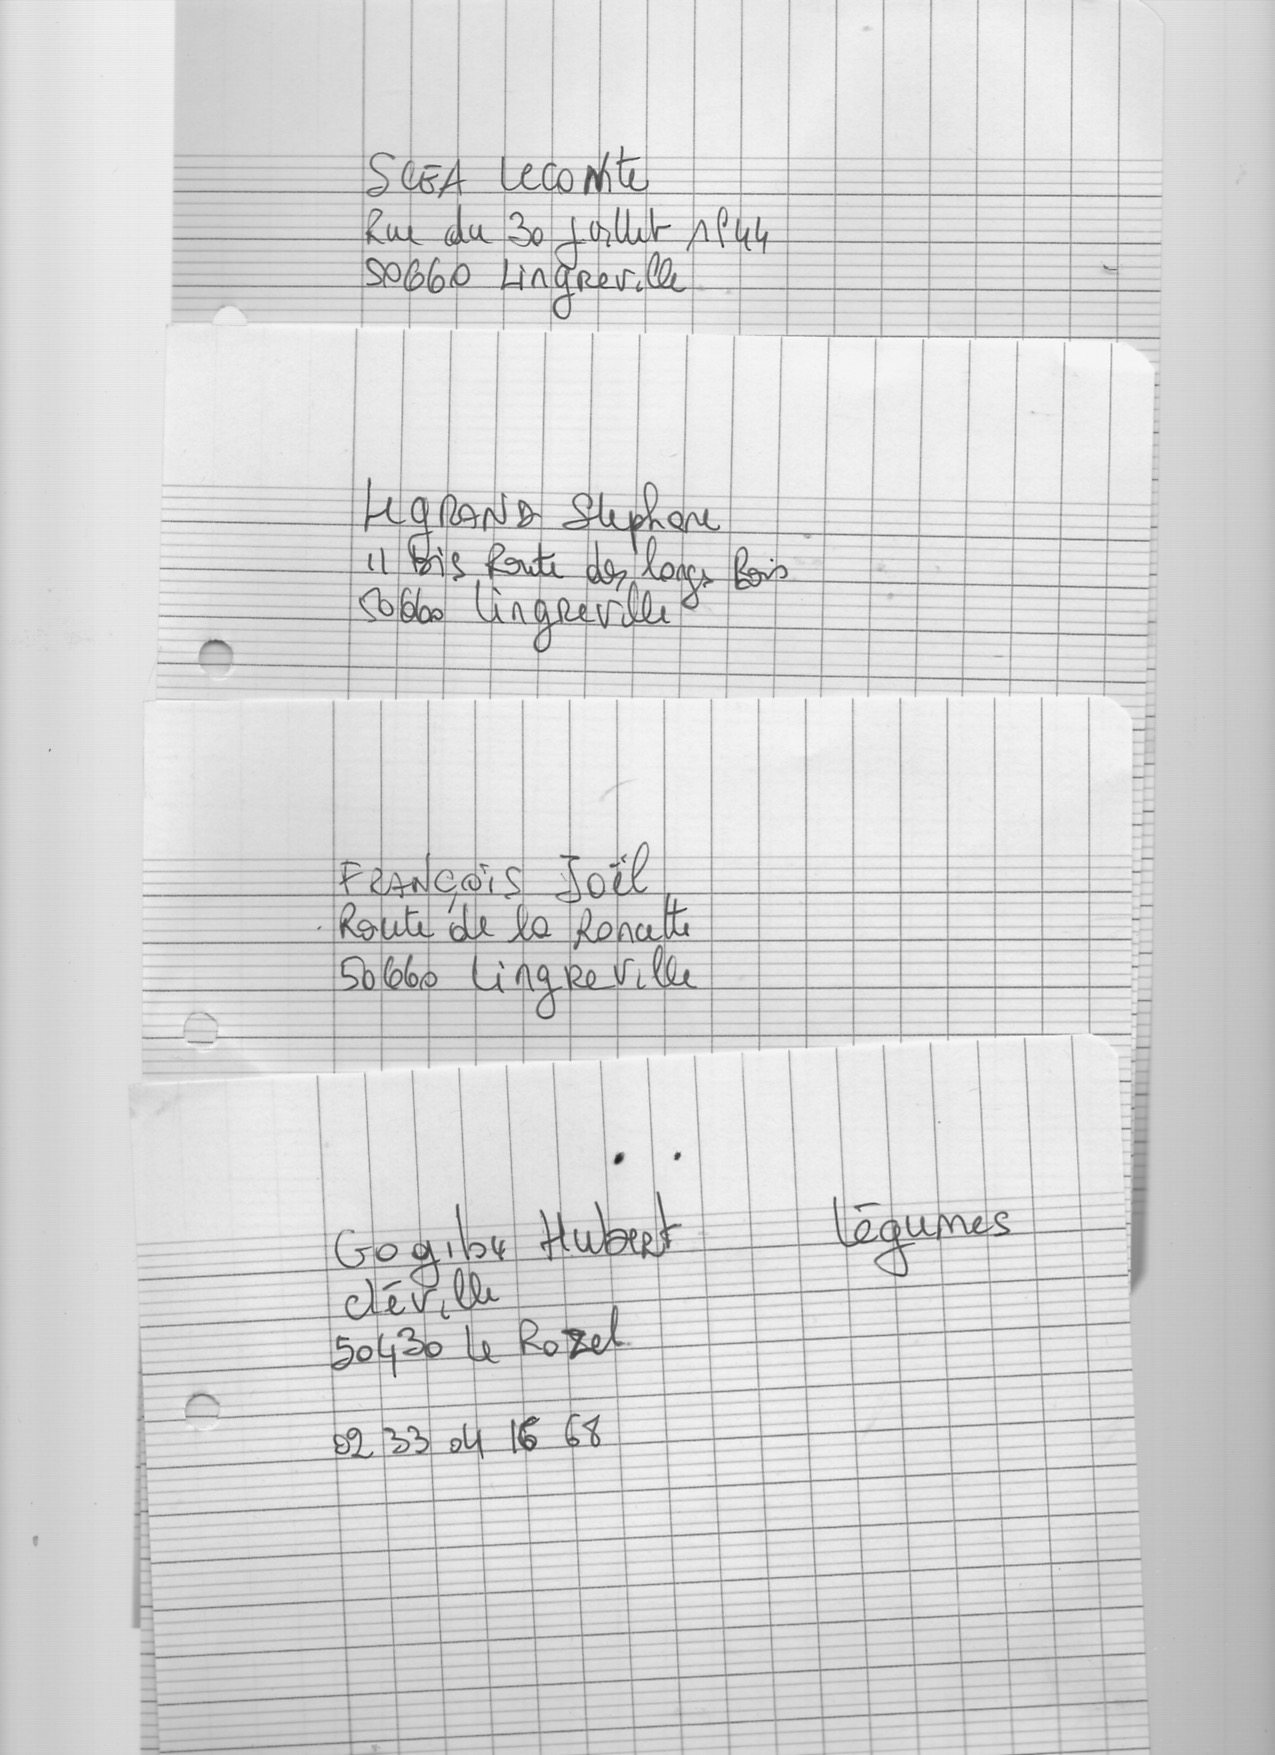 SCEA Lecomte
Rue du 30 juillet 1944
50660 Lingreville
LeGRAND Stephane
11 Bis Route des longs Bois
50660 Lingreville
FRANÇOIS Joël
Route de la Roncette
50660 Lingreville
Hubert Légumes
déville
50430 le Rozel
02 33 04 16 68